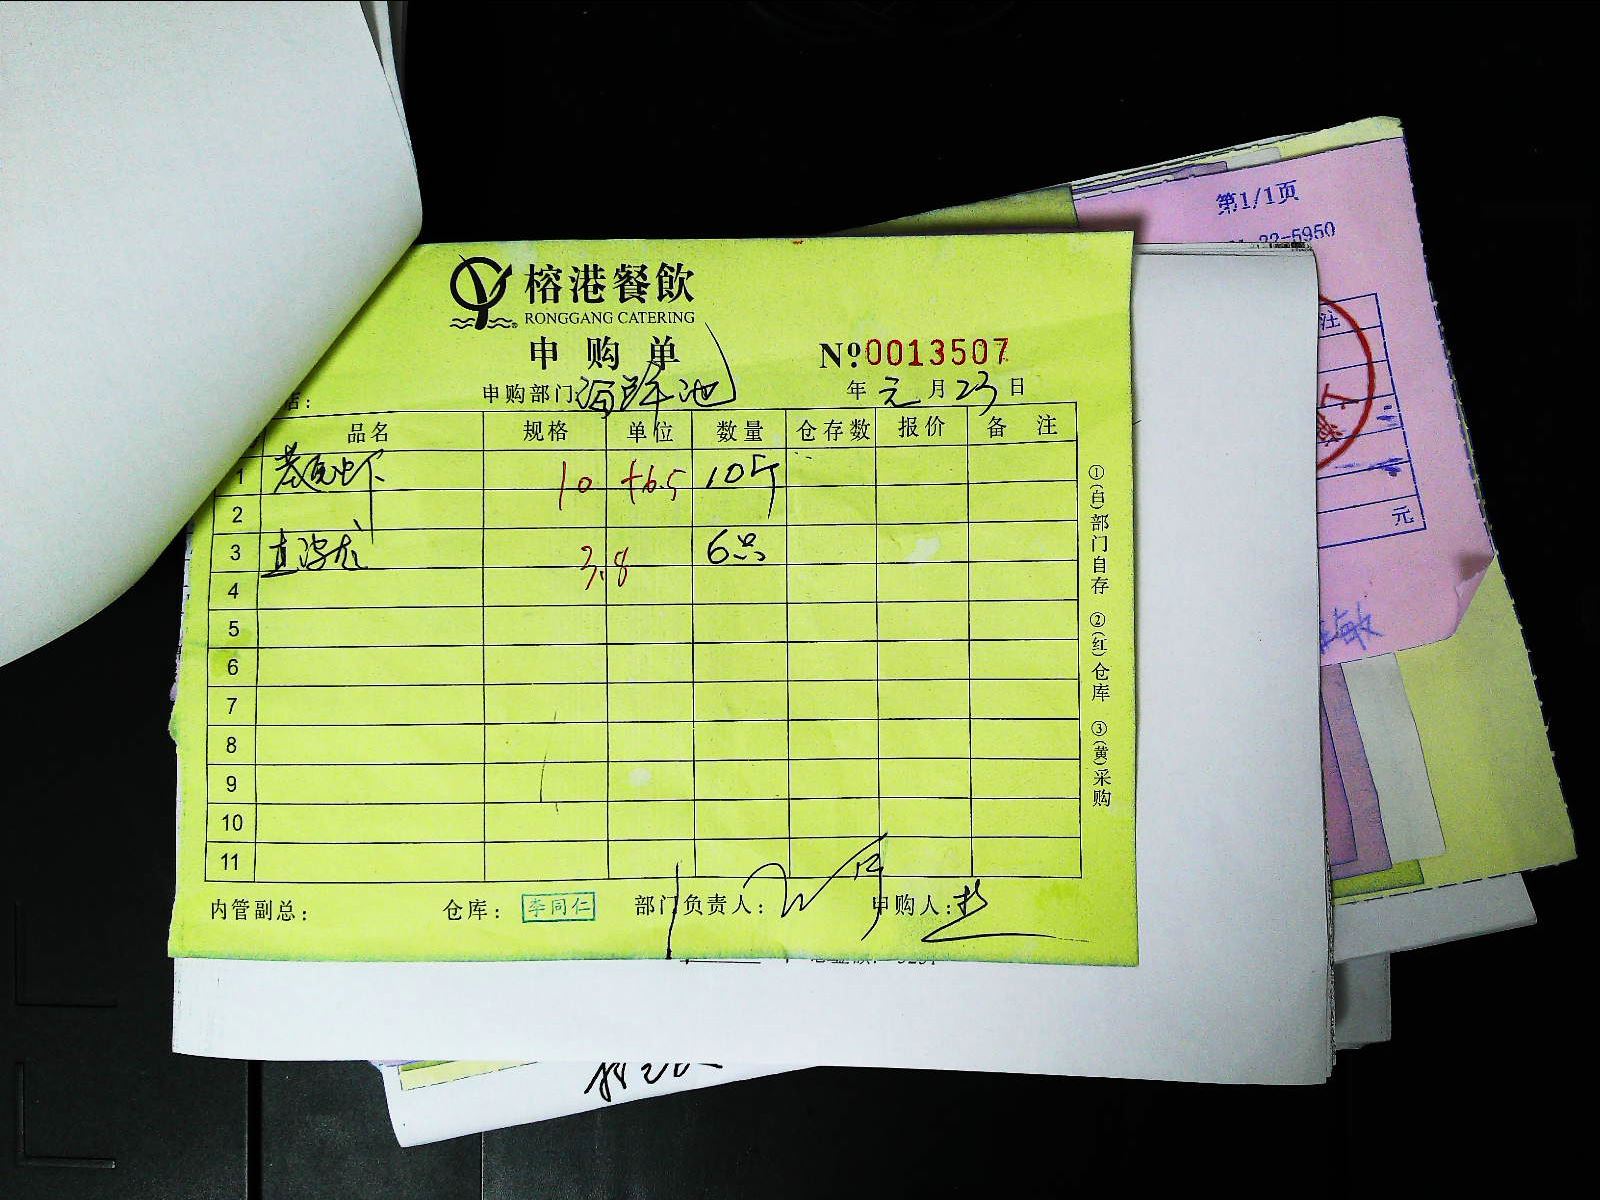 榕港餐飲
RONGGANG CATERING
申购单
№0013507
店：
申购部门:海鲜池
年元月23日
品名 规格 单位 数量 仓存数 报价 备注
1 基围虾 10 +6.5 10斤
2
3 直波龙 3.8 6只
4
5
6
7
8
9
10
11
内管副总：
仓库：李同仁
部门负责人：
申购人：
①(白)部门自存 ②(红)仓库 ③(黄)采购
第1/1页
22-5950
注
元
敏